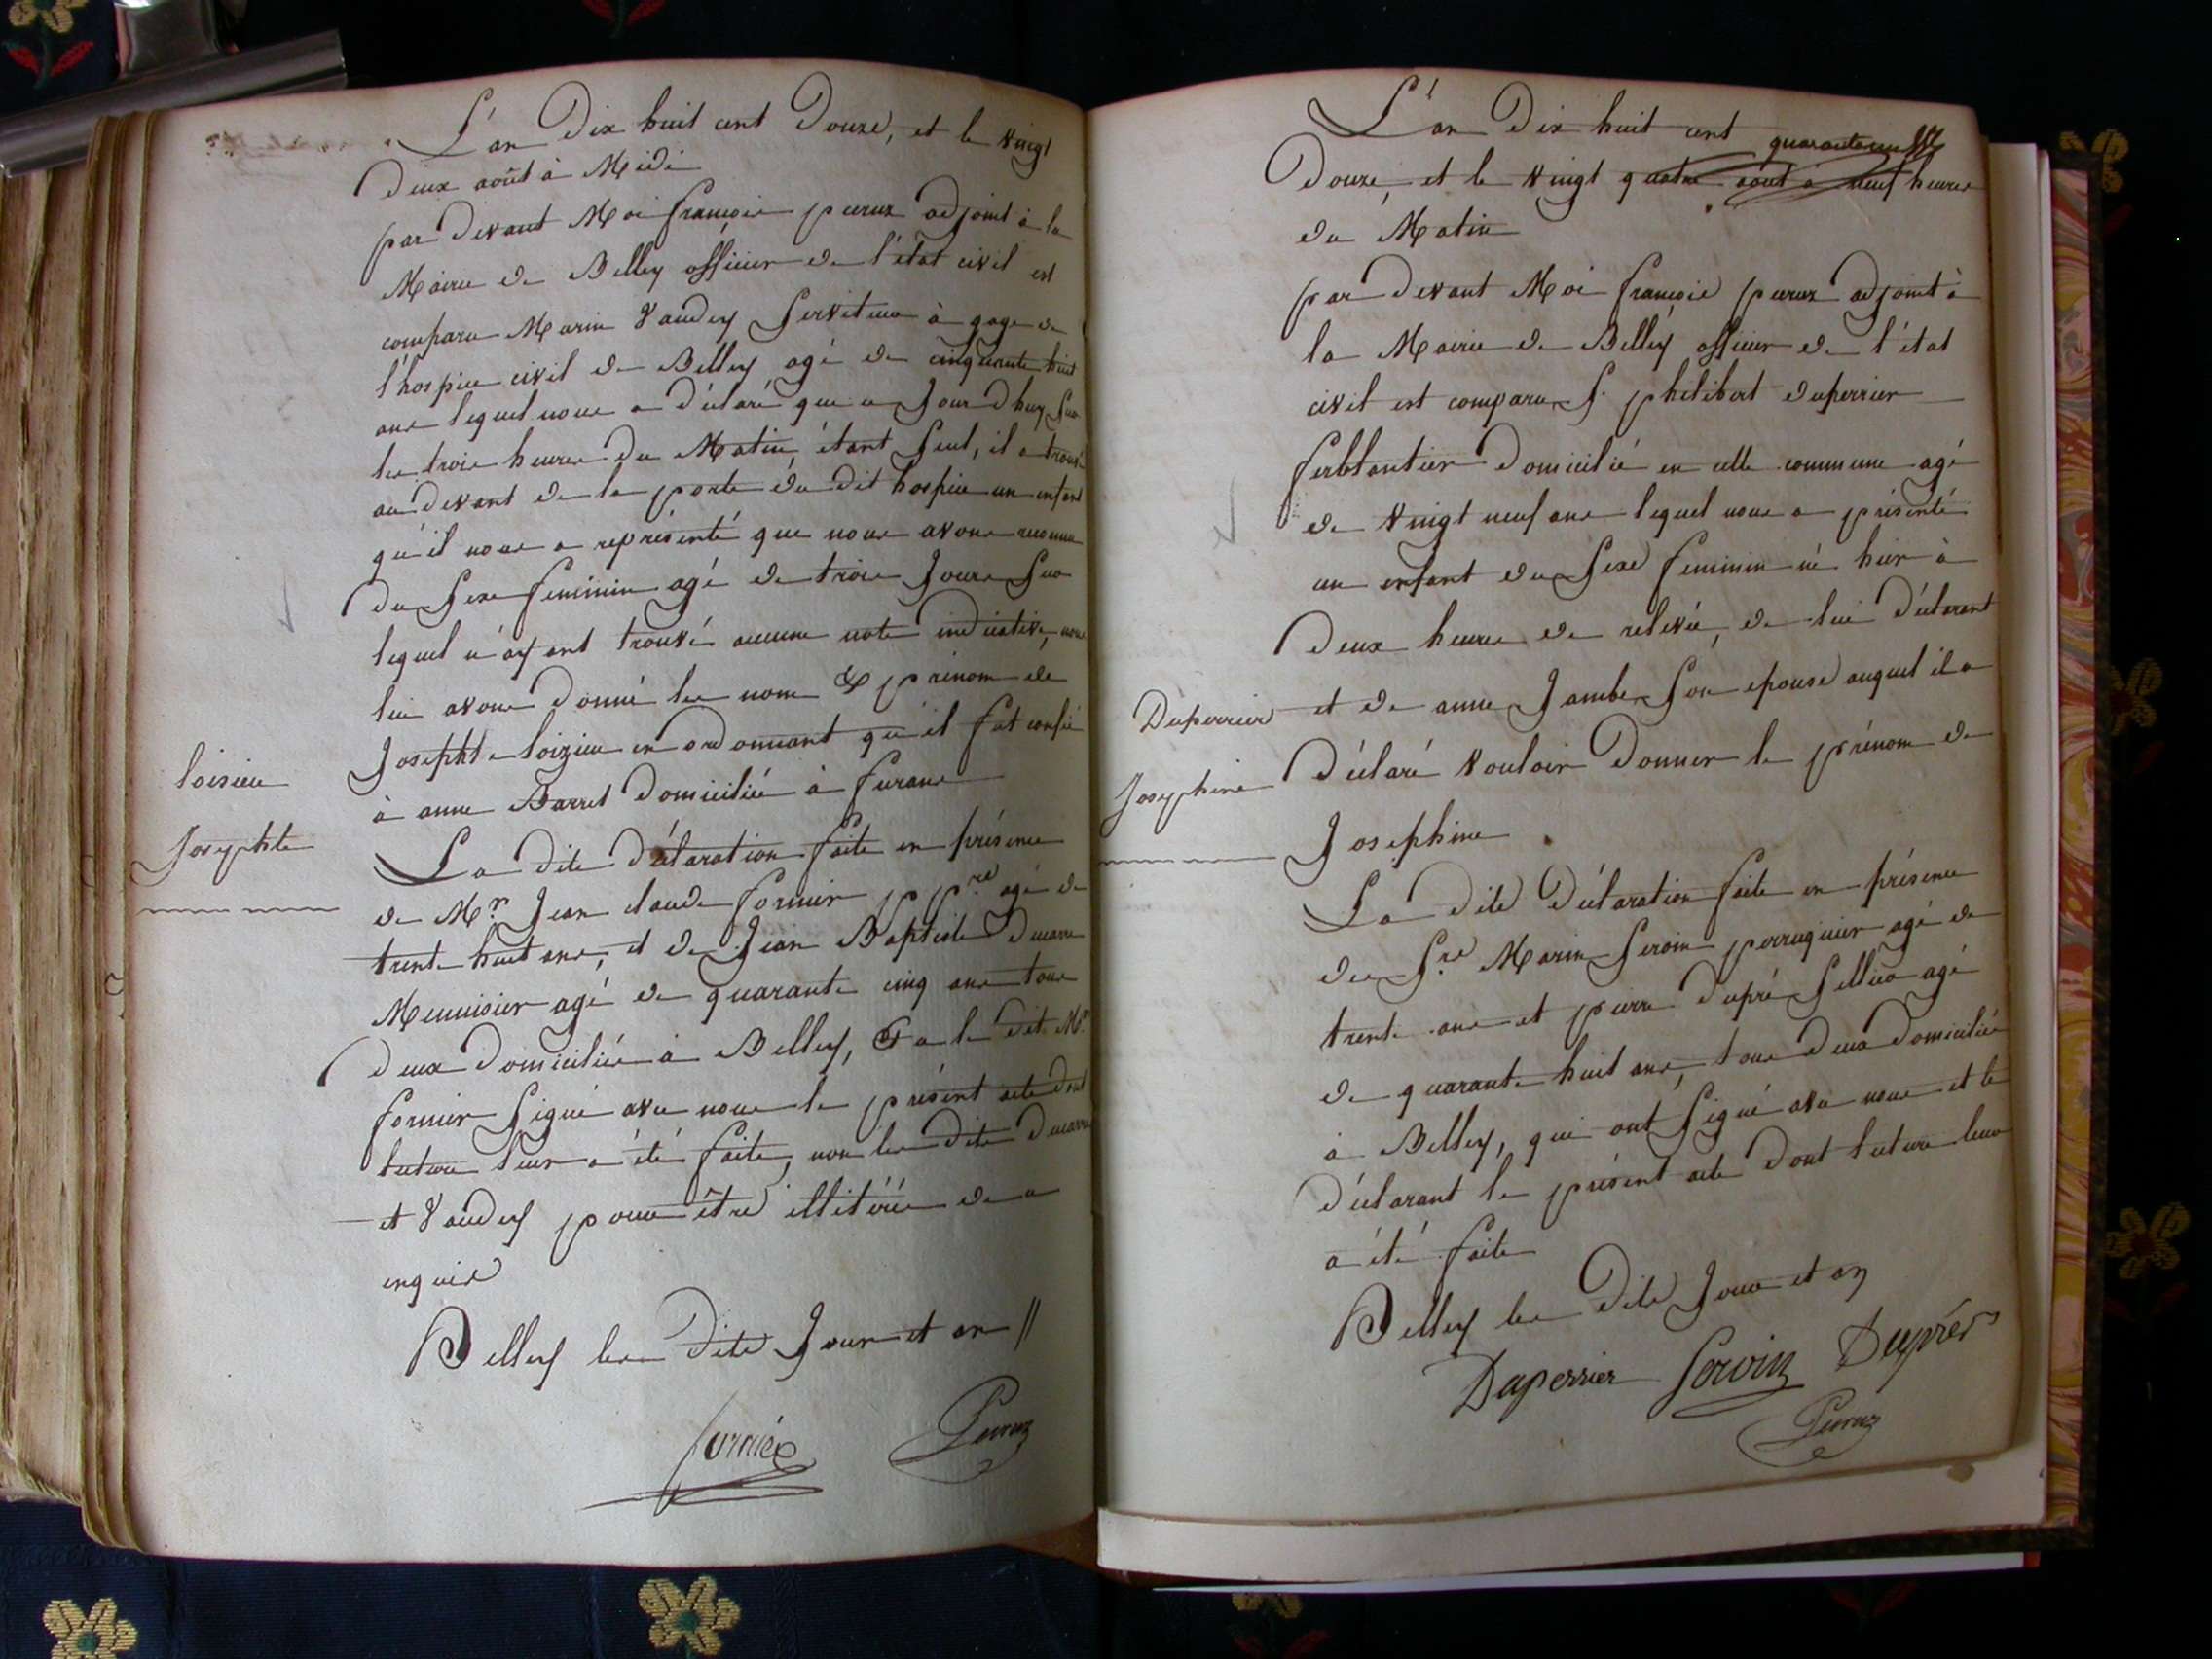 L'an Dix huit cent Douze, et le vingt
Deux août à Midi
par Devant Moi françois peruz adjoint à la
Mairie de Belley officier de l'état civil est
comparu Marin Vaudey Serviteur à gage de
l'hospice civil de Belley agé de cinquante huit
ans lequel nous a déclaré que ce Jour Dhuy Sur
les trois heures du Matin, étant Seul, il a trouvé
au devant de la porte du dit hospice un enfant
qu'il nous a représenté que nous avons reconnu
du Sexe feminin agé de trois Jours Sur
lequel n'ayant trouvé aucune note indicative, nous
lui avons donné les nom & prénom de
Josephte loizieu en ordonnant qu'il fut confié
loisieu
Josephte
à anne Barret Domiciliée à furans
La dite déclaration faite en présence
de Mr. Jean claude fornier ppre. agé de
trente huit ans, et de Jean Baptiste Ducarre
Menuisier agé de quarante cinq ans tous
deux Domiciliés à Belley, & a le dit Mr.
fornier Signé avec nous le présent acte dont
lecture leur a été faite, non les dits Ducarre
et Vaudey pour être illitérés de ce
enquis
Belley les Dits Jour et an //
fornier Peruz
L'an Dix huit cent
Douze, et le vingt quatre août à neuf heures
du Matin
par Devant Moi françois peruz adjoint à
la Mairie de Belley officier de l'état
civil est comparu S. philibert duperrier
ferblantier Domicilié en cette commune agé
de vingt neuf ans lequel nous a présenté
un enfant du Sexe feminin né hier à
Deux heures de relevée, de lui déclarant
et de anne Jambe Son epouse auquel il a
Duperrier
déclaré vouloir Donner le prénom de
Josephine
Josephine
La dite Déclaration faite en présence
des Srs Marin perruquier agé de
trente ans et pierre dupré Sellier agé
de quarante huit ans, tous deux Domiciliés
à Belley, qui ont Signé avec nous et le
déclarant le présent acte dont lecture leur
a été faite
Belley les Dits Jour et an
Duperrier Dupré
Peruz